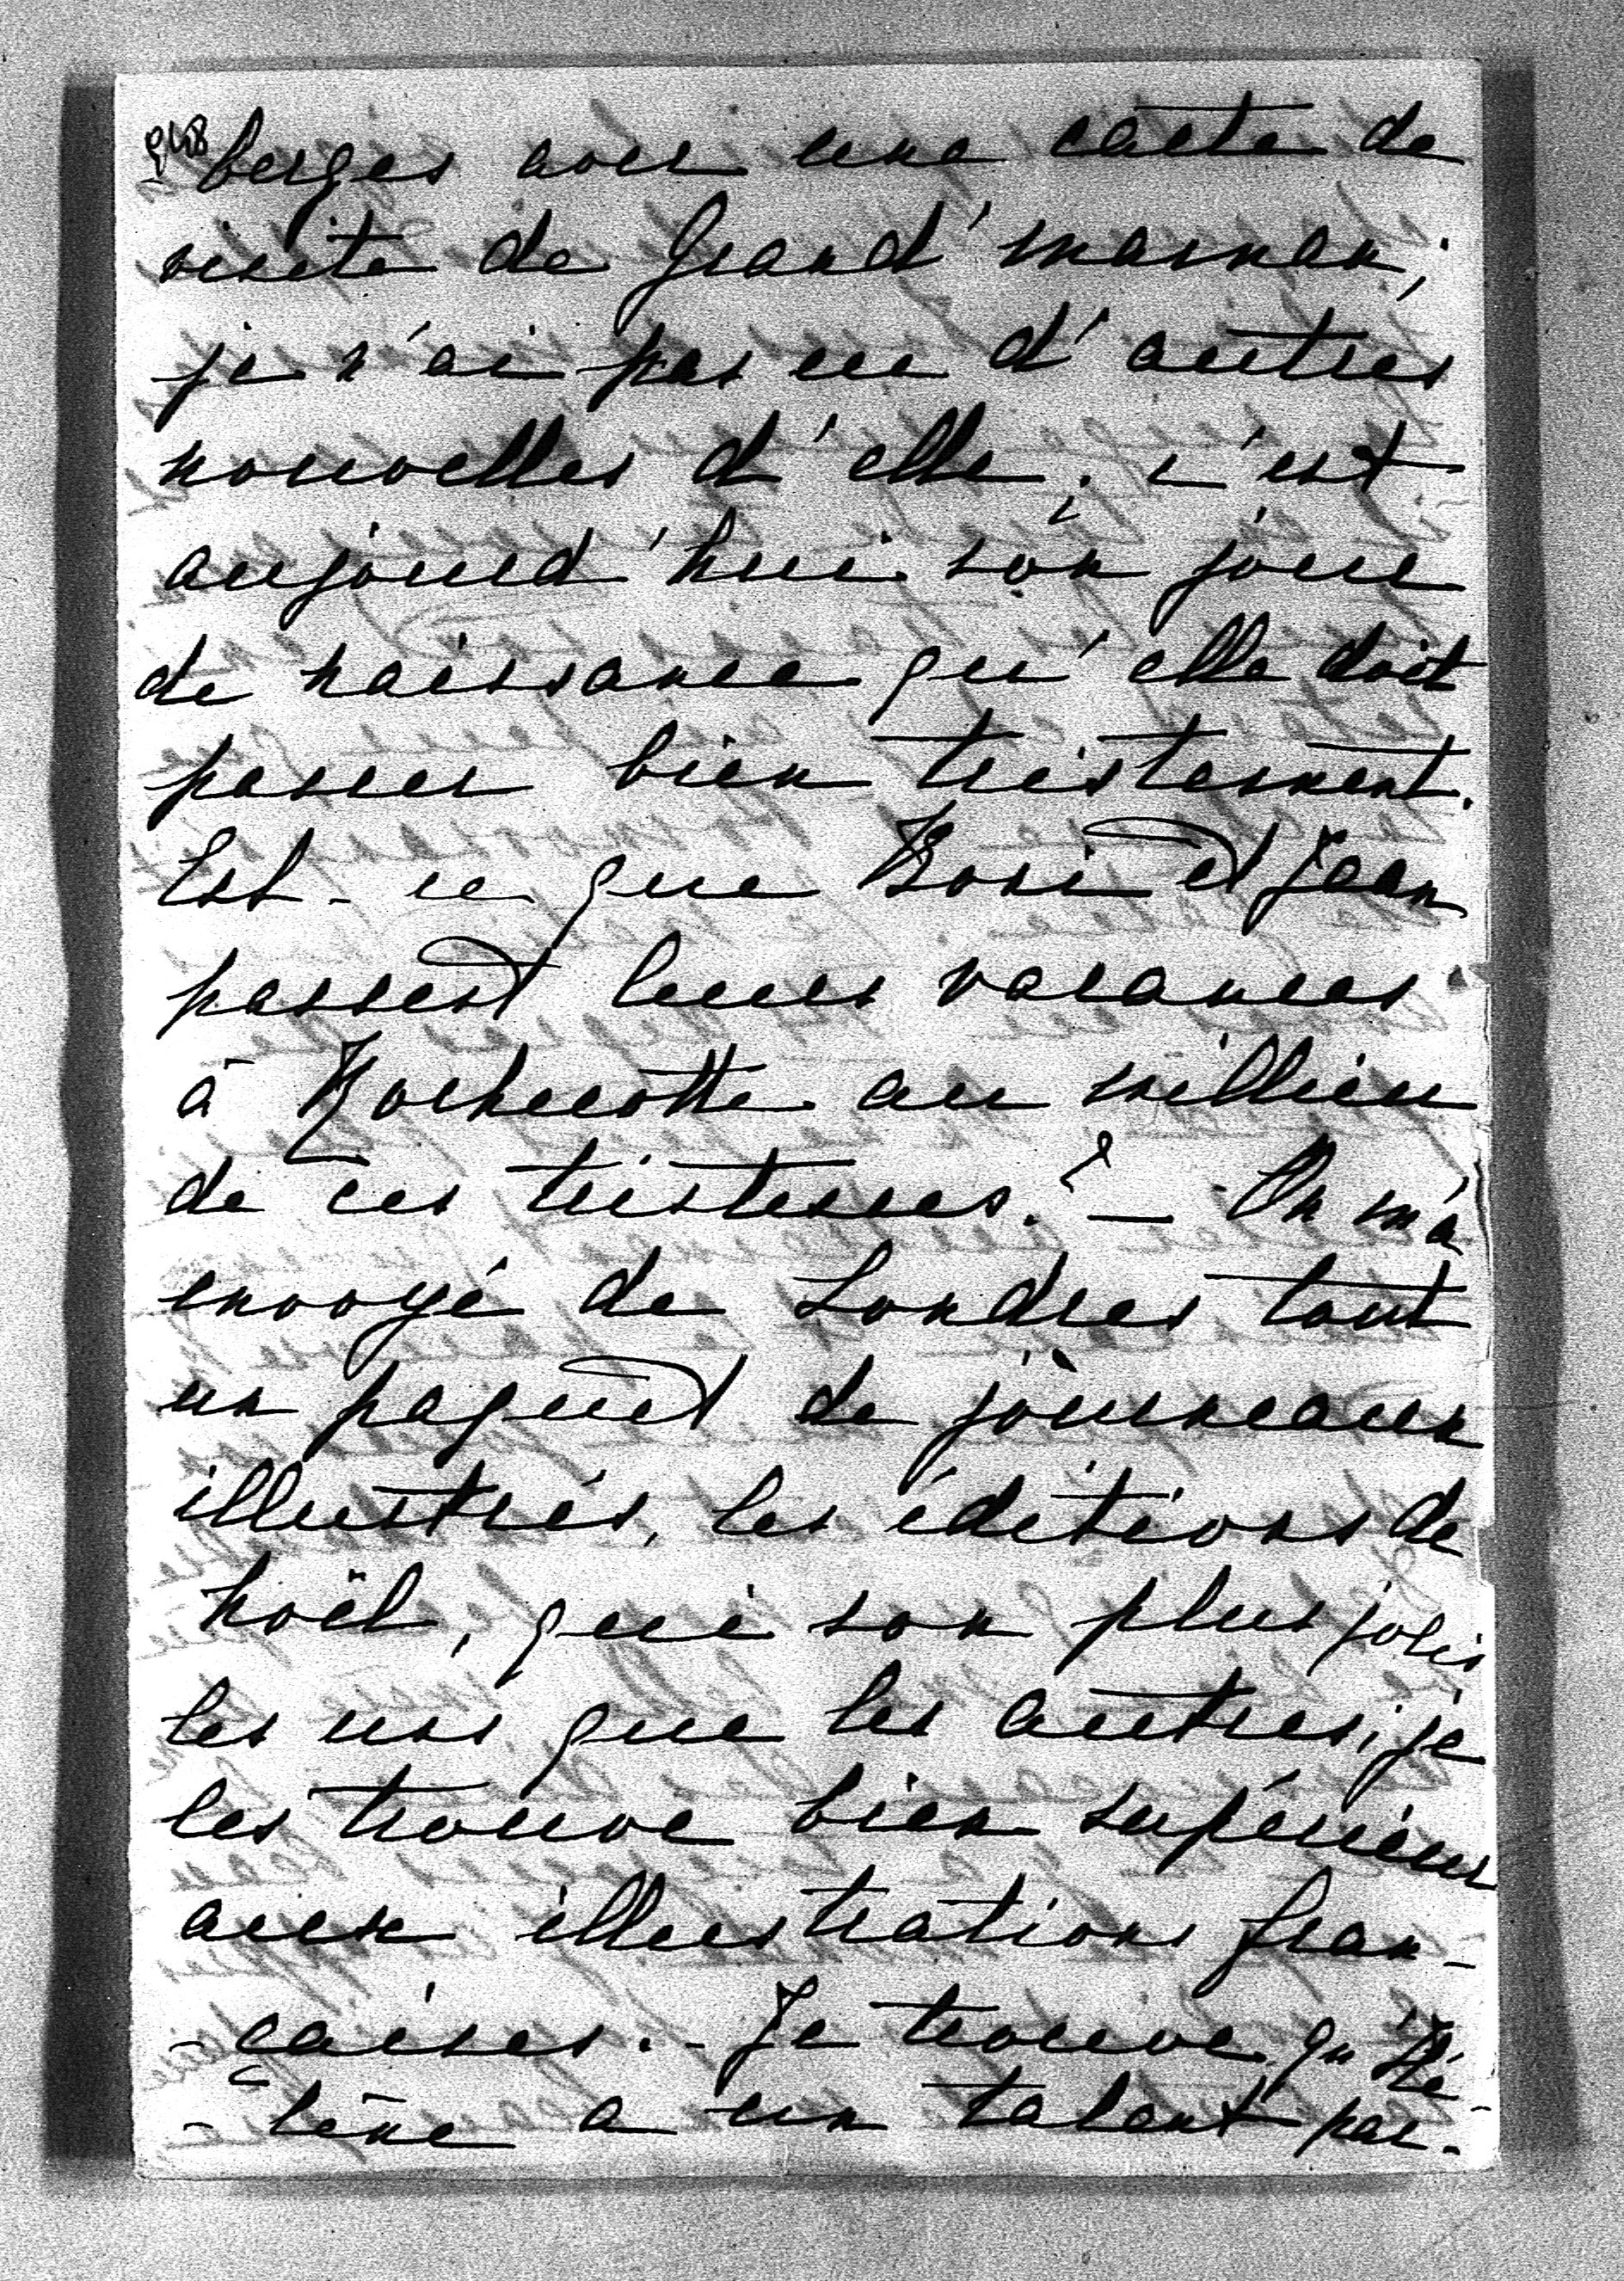 948
berges avec une carte de
visite de Grand'maman;
je n'ai pas eu d'autres
nouvelles d'elle; c'est
aujourd'hui son jour
de naissance qu'elle doit
passer bien tristement.
Est-ce que Boni et Jean
passent leurs vacances
à Rochecotte au millieu
de ces tristesses? — On m'a
envoyé de Londres tout
un paquet de journeaux
illustrés, les éditions de
Noël, qui son plus jolis
les uns que les autres; je
les trouve bien supérieurs
aux illustrations fran-
-çaises. - Je trouve qu'Hé-
-lène a un talent par-